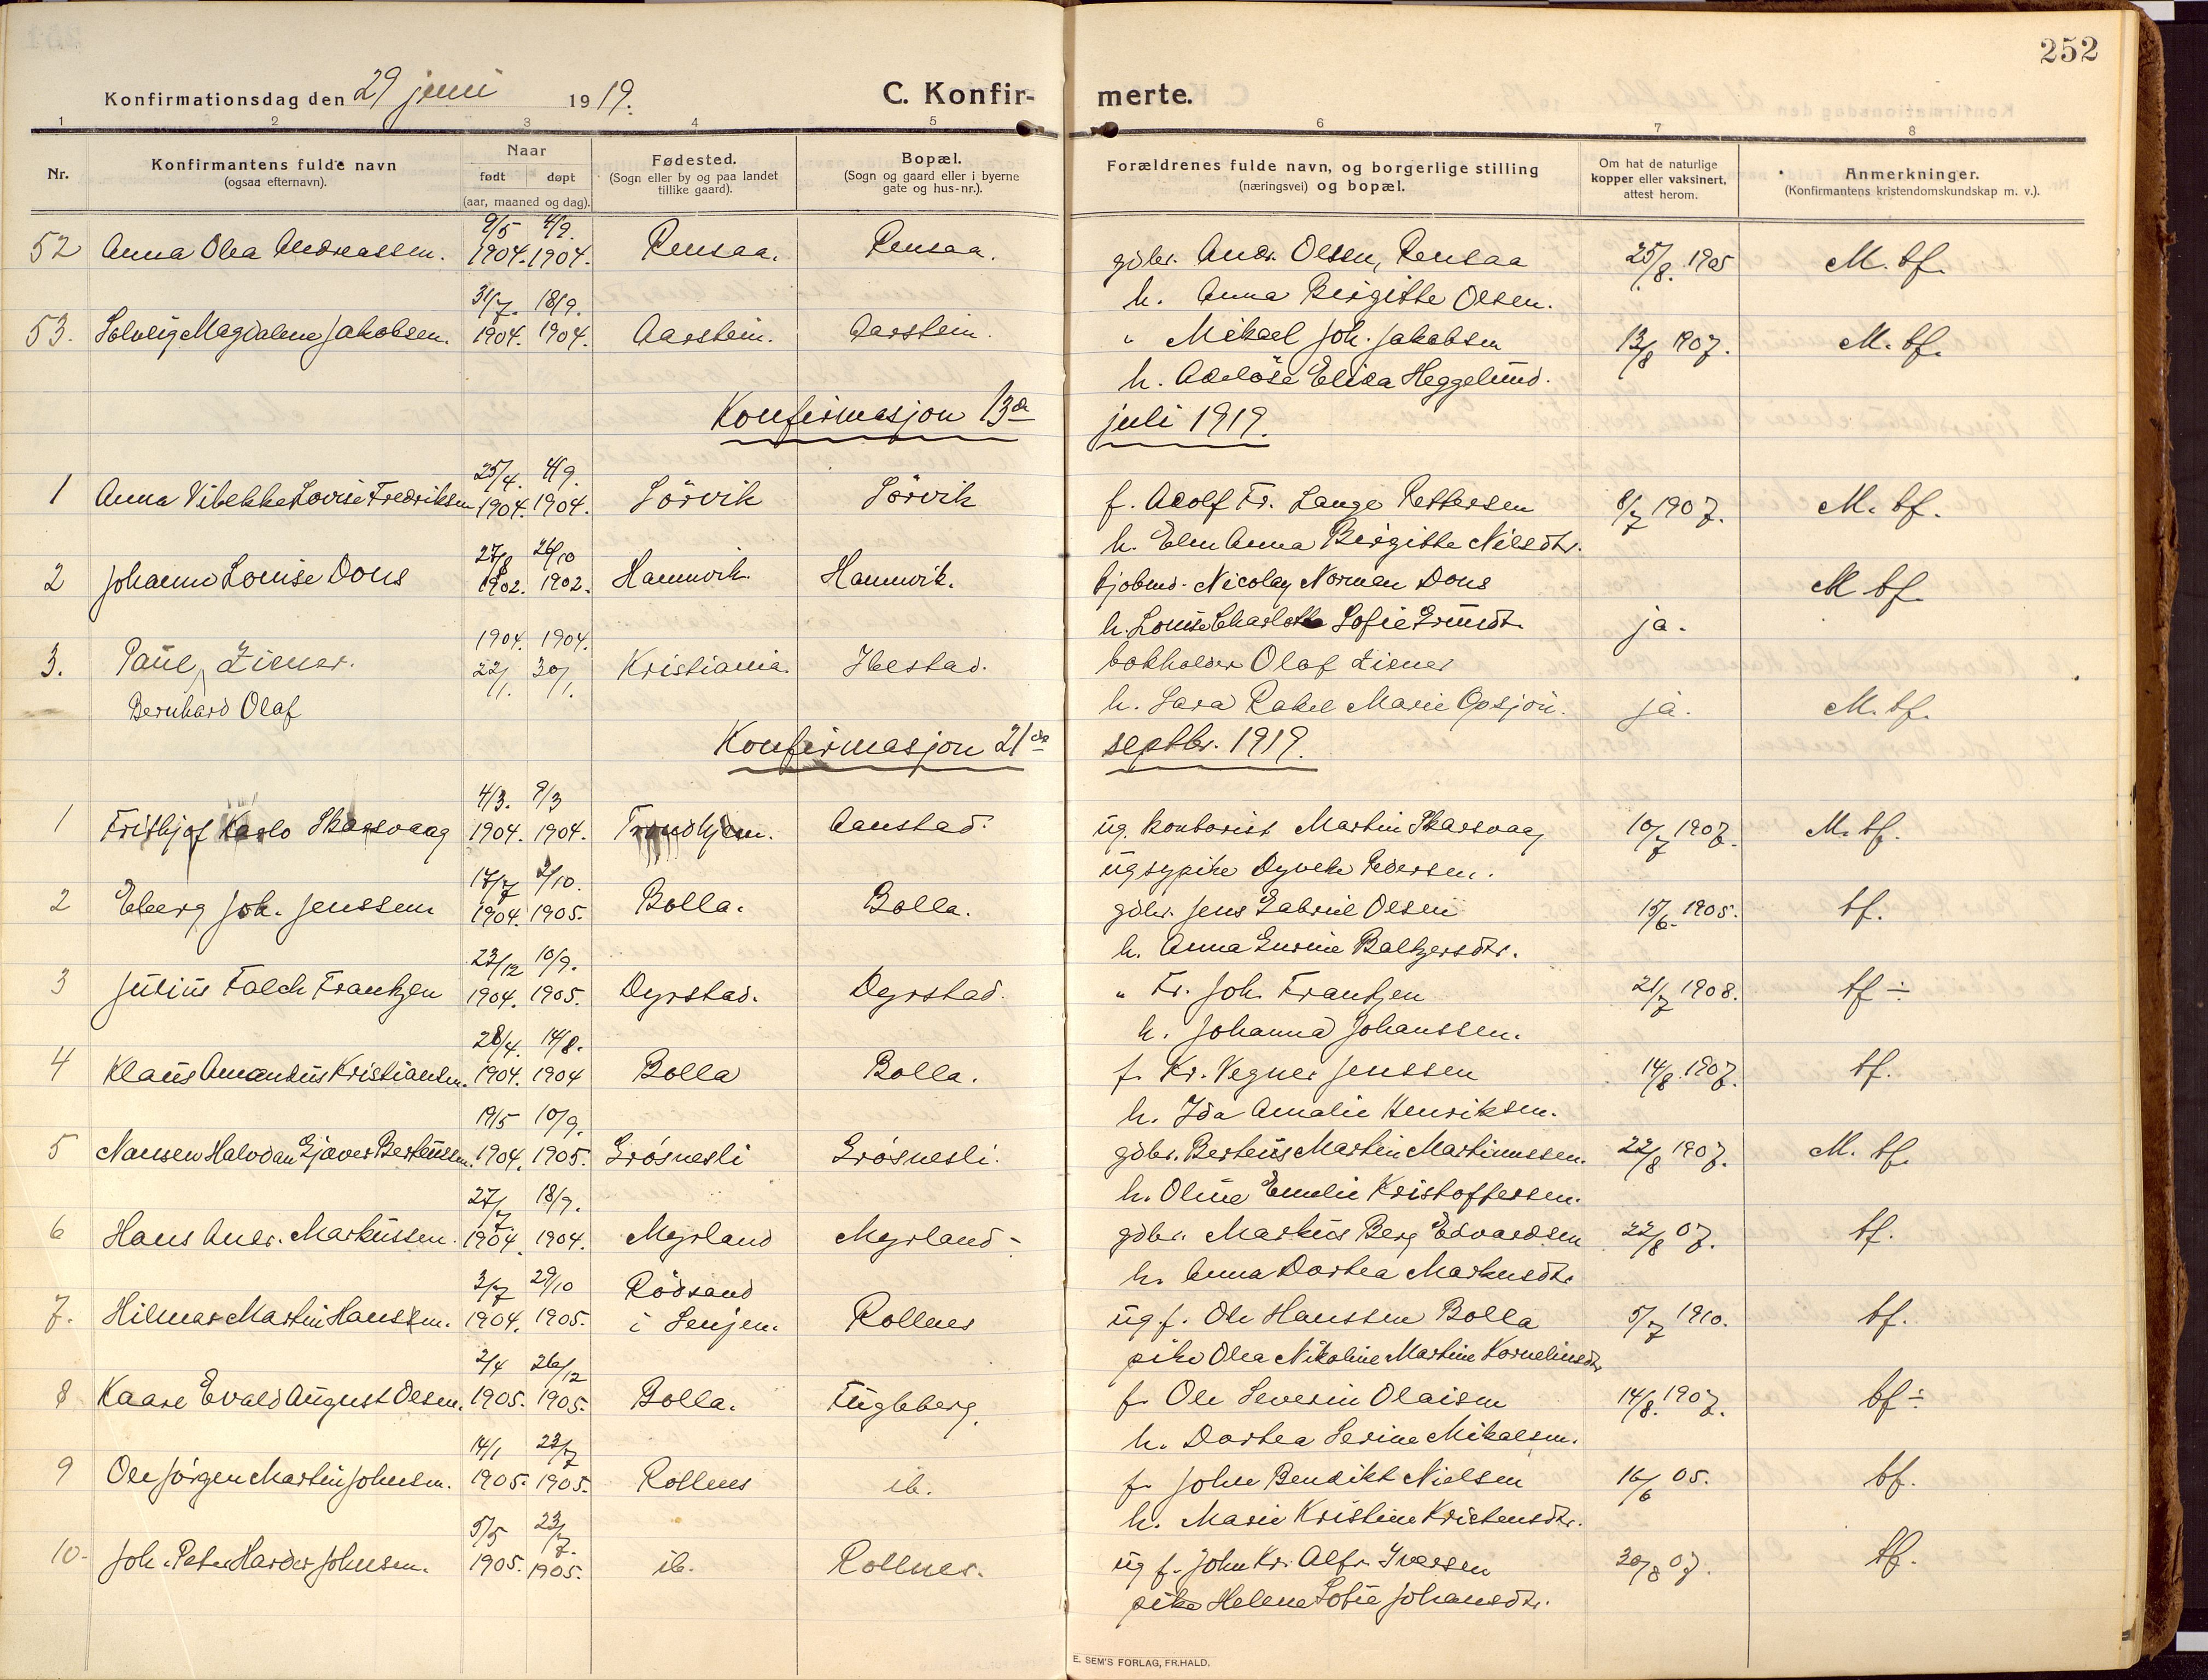 252
Konfirmationsdag den 29 juni 1919. C. Konfirmerte.
1 2 3 4 5 6 7 8
Nr. Konfirmantens fulde navn (ogsaa efternavn). Naar født døpt (aar, maaned og dag). Fødested. (Sogn eller by og paa landet tillike gaard). Bopæl. (Sogn og gaard eller i byerne gate og hus-nr.). Forældrenes fulde navn, og borgerlige stilling (næringsvei) og bopæl. Om hat de naturlige kopper eller vaksinert, attest herom. Anmerkninger. (Konfirmantens kristendomskundskap m. v.).
9/5 4/9.
52 Anna Olea Andreassen. 1904. 1904. Rensaa. Rensaa. gdbr. Andr. Olsen, Rensaa 25/8. 1905 M. tf.
h. Anna Birgitte Olsen.
31/7. 18/9.
53. Solveig Magdalene Jakobsen. 1904. 1904. Aarstein. Aarstein. " Mikael Joh. Jakobsen 13/8 1907. M. tf.
h. Adelöse Elisa Heggelund.
Konfirmasjon 13de juli 1919.
25/4. 4/9.
1 Anna Vibekke Lovise Fredriksen 1904. 1904. Sörvik Sörvik f. Adolf Fr. Lange Pettersen 8/7 1907. M. tf.
h. Elen Anna Birgitte Nilsdtr.
27/8 26/10
2 Johanne Louise Dons 1902. 1902. Hamnvik. Hamnvik. kjøbmd. Nicolay Norman Dons M tf.
h. Louise Charlotte Sofie ja.
1904. 1904.
3. Paul, Ziener. 22/1. 30/1. Kristiania. Ibestad. bokholder Olaf Ziener
Bernhard Olaf h. Sara Rakel Marie Opsjön. ja. M. tf.
Konfirmasjon 21de septbr. 1919.
4/3. 9/3
1 Frithjof Karlo Skarsvaag 1904. 1904. Trondhjem. Aanstad. ug. kontorist Martin Skarsvaag 10/7 1907. M. tf.
ug sypike Dyveke Pedersen.
17/7 2/10.
2 Eberg Joh. Jenssen 1904. 1905. Bolla. Bolla. gdbr. Jens Gabriel Olsen 15/6. 1905. tf.
h. Anna Gurine Baltzersdtr.
23/12 10/9.
3 Julius Falch Frantzen 1904. 1905. Dyrstad. Dyrstad. " Fr. Joh. Frantzen 21/7 1908. tf ÷
h. Johanna Johanssen.
28/4. 14/8.
4 Klaus Amandus Kristiansen. 1904. 1904 Bolla Bolla. f. Kr. Vegner Jenssen 14/8 1907. tf.
h. Ida Amalie Henriksen.
19/5 10/9.
5 Nansen Halvdan Gjæver Berteussen. 1904. 1905. Grösnesli Grösnesli. gdbr. Berteus Martin Martinussen. 22/8 1907. M. tf.
h. Oline Emelie Kristoffersen.
27/7. 18/9.
6 Hans Andr. Markussen. 1904. 1904. Myrland Myrland. gdbr. Markus Berg Edvardsen 22/8 07. tf.
h. Anna Dortea Markusdtr
3/7 29/10 Rödsand
7. Hilmar Martin Hanssen. 1904. 1905. i Senjen. Rollnes ug. f. Ole Hanssen Bolla 5/7 1910. tf.
pike Olea Nikoline Martine Korneliusdtr
2/4 26/12
8 Kaare Evald August Olsen. 1905. 1905. Bolla. Fugleberg. f. Ole Severin Olaisen 14/8. 1907. tf ÷
h. Dortea Serine Mikalsen.
14/1 23/7
9 Ole Jörgen Martin Johnsen. 1905. 1905. Rollnes ib. f. John Bendikt Nielsen 16/6 05. tf.
h. Marie Kristine Kristensdtr.
5/5 23/7.
10. Joh. Peter Harder Johnsen. 1905. 1905. ib. Rollnes. ug f. John Kr. Alfr. Iversen 30/8 07. tf.
pike Helene Sofie Johansdtr.
E. SEM'S FORLAG, FR.HALD.